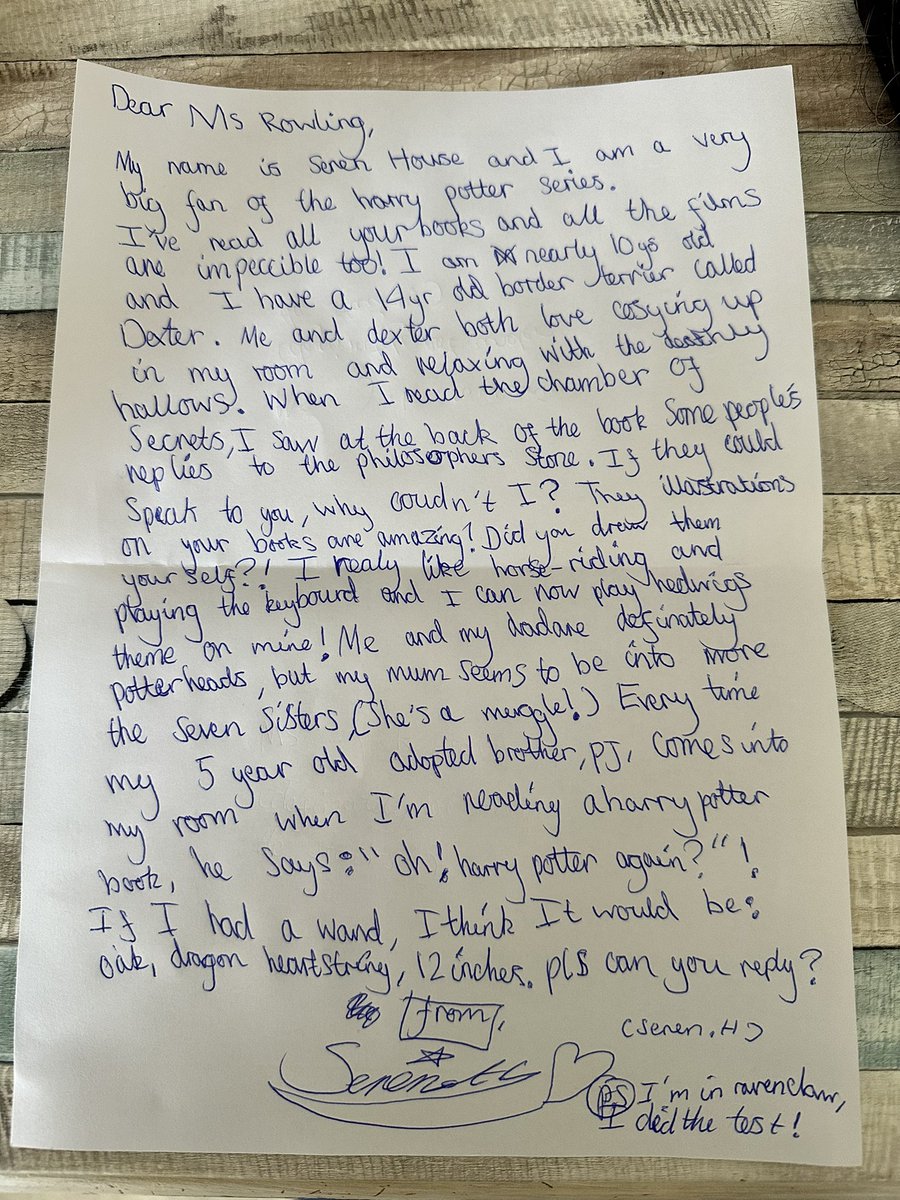 Dear Ms Rowling,
My name is Seren House and I am a very
big fan of the harry potter series.
I've read all your books and all the films
are impeccible too! I am nearly 10ys old
and I have a 14yr old border terrier called
Dexter. Me and dexter both love cosying up
in my room and relaxing with the deathly
hallows. When I read the chamber of
Secrets, I saw at the back of the book some people's
replies to the philosophers stone. If they could
speak to you, why coudn't I? They illastrations
on your books are amazing! Did you drew them
your self?! I realy like horse-riding and
playing the keybourd and I can now play hedwigs
theme on mine! Me and my dad are definately
potterheads, but my mum seems to be into more
the seven sisters, (She's a muggle!) Every time
my 5 year old adopted brother, PJ, comes into
my room when I'm reading a harry potter
book, he says: "oh! harry potter again?"!
If I had a wand, I think It would be:
oak, dragon heartstring, 12 inches. pls can you reply?
from,
(seren.H)
Seren
PS I'm in ravenclaw,
I did the test!